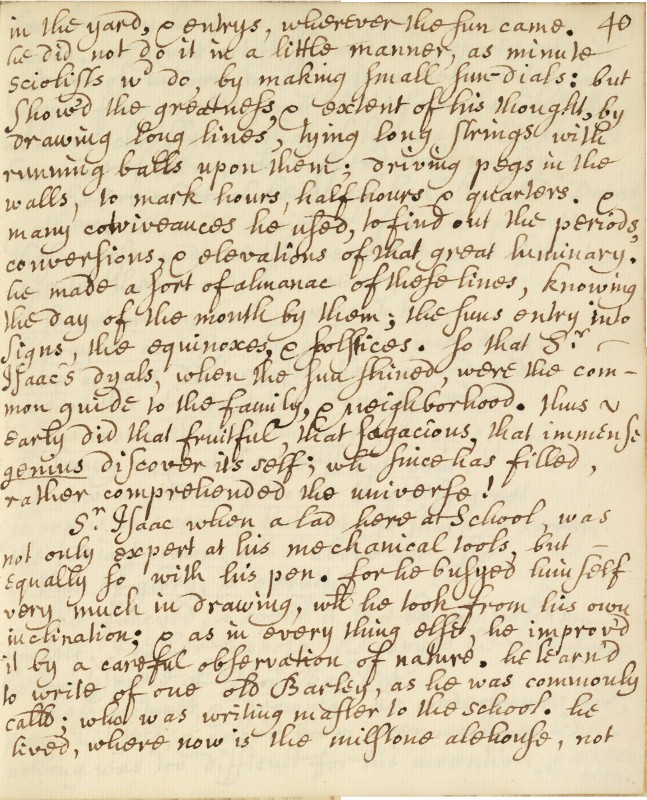 in the yard, & entrys, wherever the sun came. 40
he did not do it in a little manner, as minute
sciolists wd do, by making small sun-dials: but
show'd the greatness, & extent of his thought, by
drawing long lines, tying long strings with
running balls upon them; driving pegs in the
walls, to mark hours, half hours & quarters. &
many contriveances he used, to find out the periods,
conversions, & elevations of that great luminary.
he made a sort of almanac of these lines, knowing
the day of the month by them; the suns entry into
signs, the equinoxes, & solstices. so that Sr.
Isaac's dyals, when the sun shined, were the com-
mon guide to the family, & neighborhood. thus
early did that fruitful, that sagacious, that immense
genius discover its self; wh since has filled,
rather comprehended the universe!
Sr. Isaac when a lad here at School, was
not only expert at his mechanical tools, but
equally so with his pen. for he busyed himself
very much in drawing, wh he took from his own
inclination; & as in every thing else, he improv'd
it by a careful observation of nature. he learn'd
to write of one old Barley, as he was commonly
calld; who was writing master to the school. he
lived, where now is the milstone alehouse, not